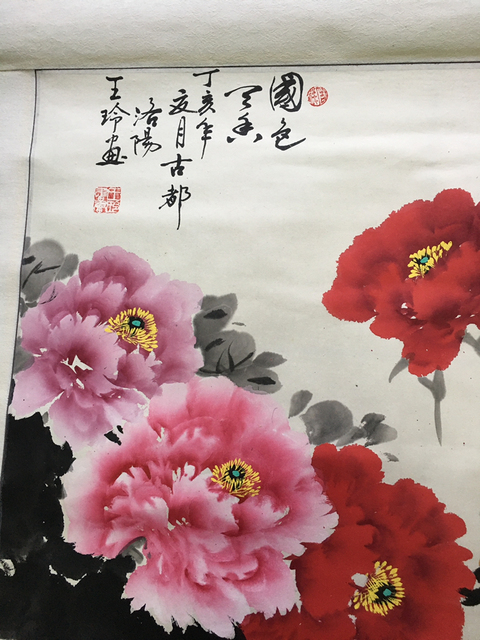 國色
天香
丁亥年
夏月古都
洛陽
王玲畫